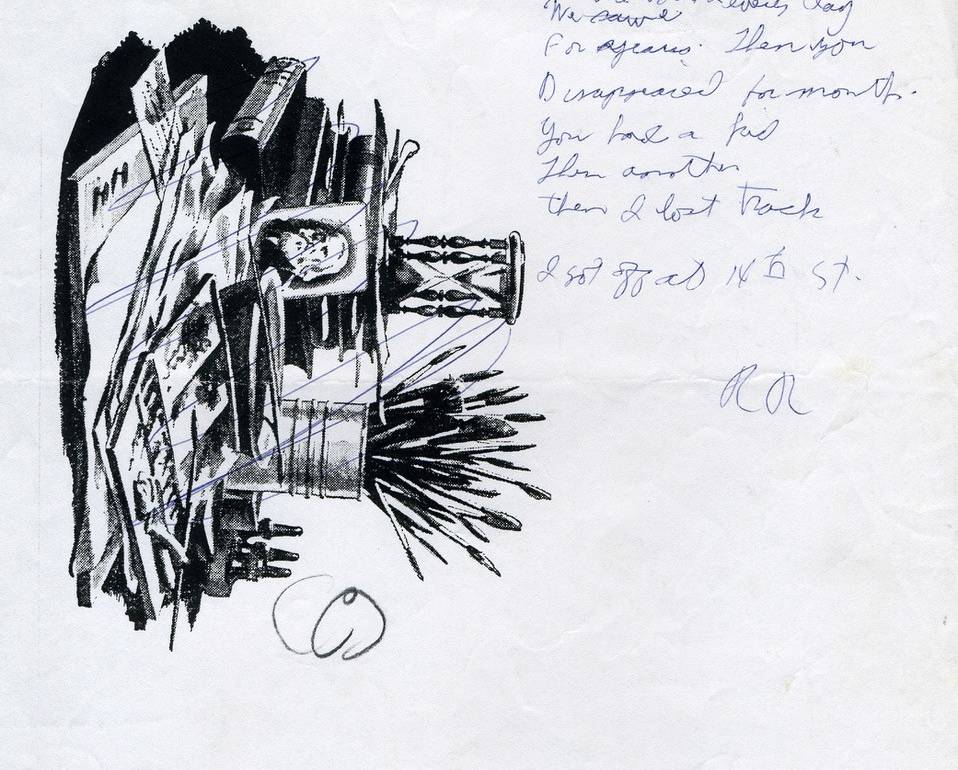 every day
We
For years. Then you
Disappeared for months.
You had a kid
Then another
then I lost Track
I got off at 14th St.
RR